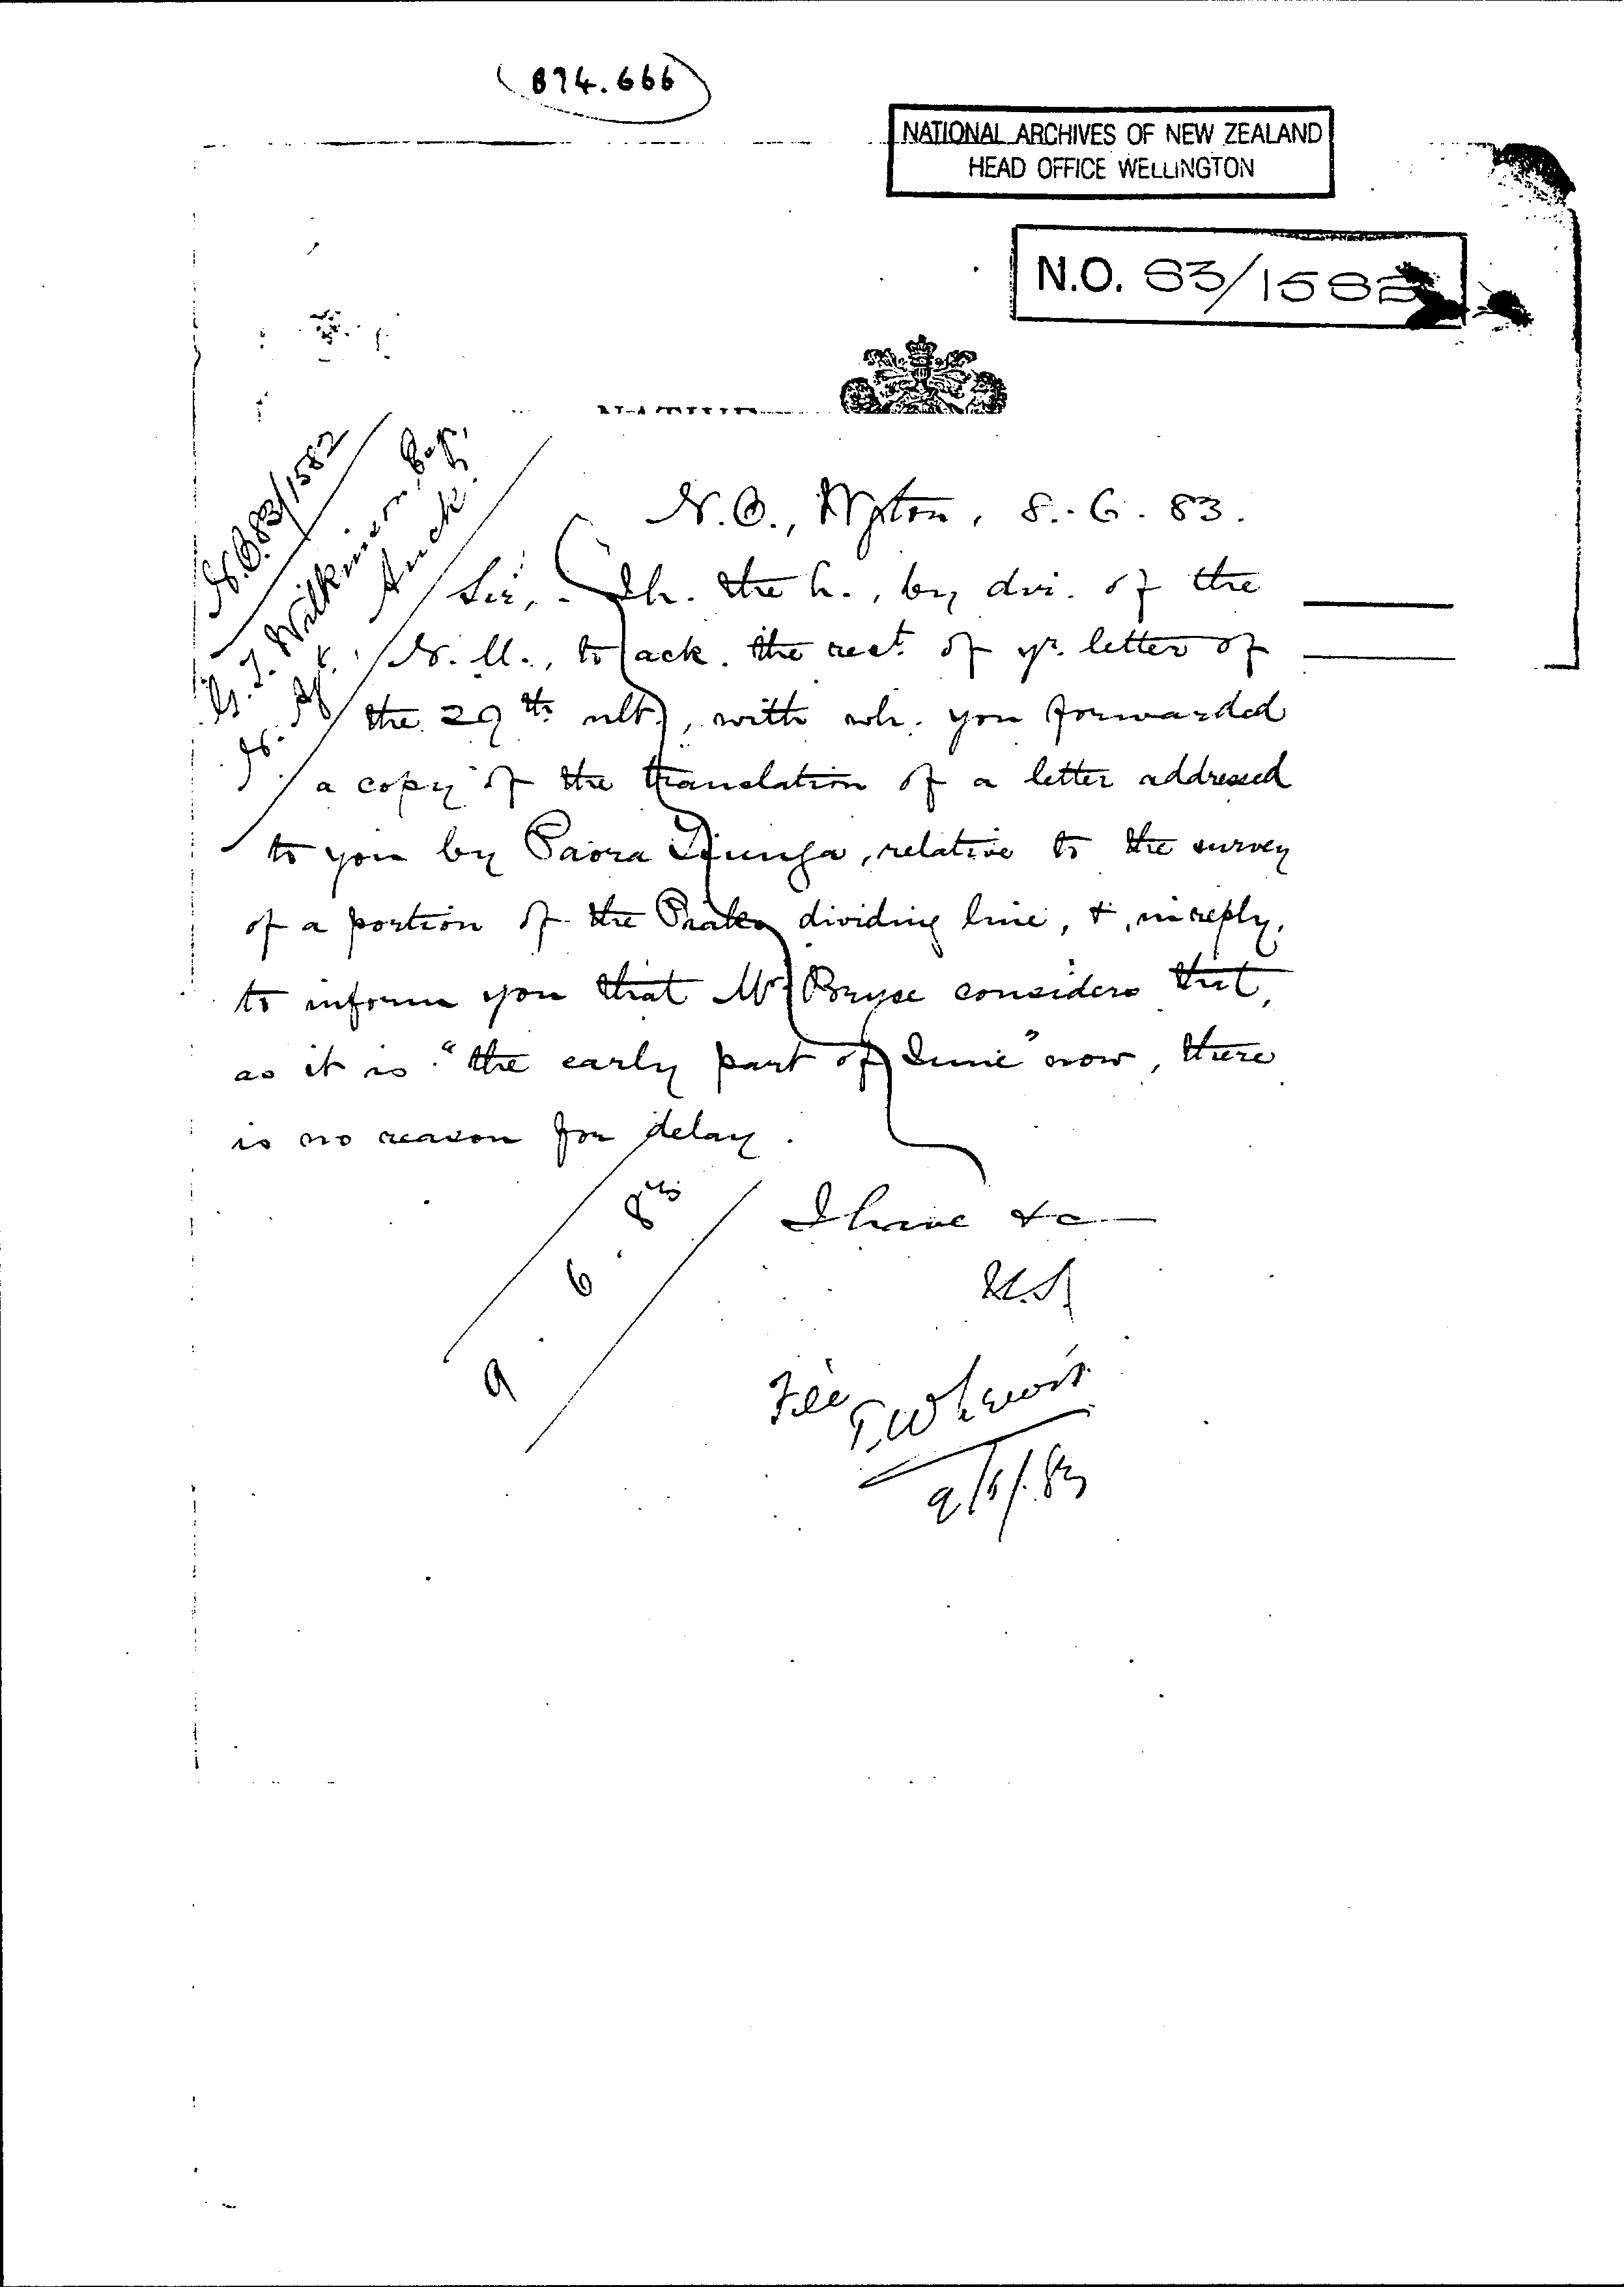 894.666
NATIONAL ARCHIVES OF NEW ZEALAND
HEAD OFFICE WELLINGTON
N.O. 83/1582
N.O. 83/1582
G. T. Wilkinson, Esq.,
N. Agt. Auck.
N.O., Wgton, 8. 6. 83.
Sir, - Ih. the h., by dir. of the
N. M., to ack. the rect. of yr. letter of
the 29th ult., with wh. you forwarded
a copy of the translation of a letter addressed
to you by Paora Tiunga, relative to the survey
of a portion of the Piako dividing line, &, in reply,
to inform you that Mr Bryce considers that,
as it is "the early part of June" now, there
is no reason for delay.
I have &c
U.S.
9. 6. 83
File
T.W. Lewis
9/6/83